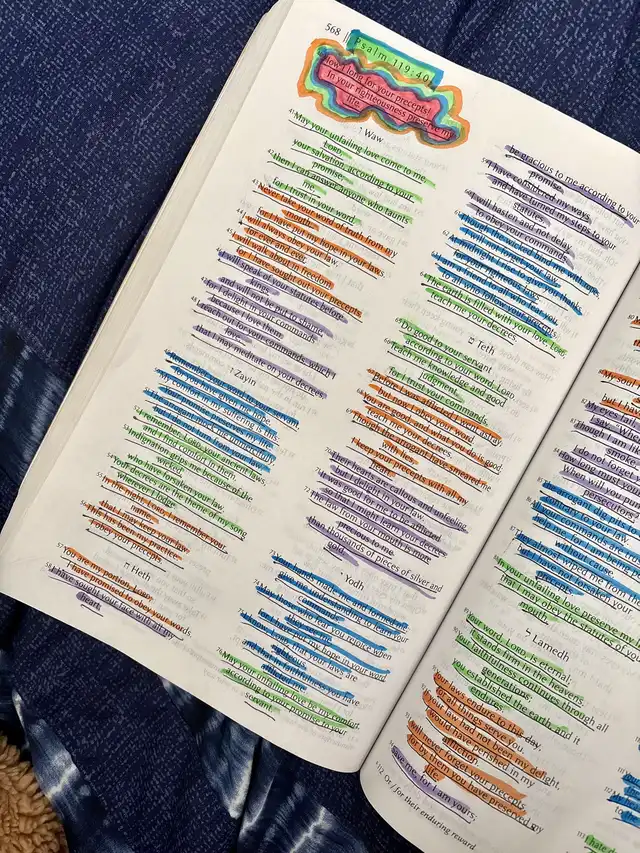 568 || Psalm 119:40
How I long for your precepts!
In your righteousness preserve my
life.
ו Waw
41 May your unfailing love come to me,
LORD,
your salvation, according to your
promise;
42 then I can answer anyone who taunts
me,
for I trust in your word.
43 Never take your word of truth from my
mouth,
for I have put my hope in your laws.
44 I will always obey your law,
for ever and ever.
45 I will walk about in freedom,
for I have sought out your precepts.
46 I will speak of your statutes before
kings
and will not be put to shame,
47 for I delight in your commands
because I love them.
48 I reach out for your commands, which I
love,
that I may meditate on your decrees.
ז Zayin
49 Remember your word to your servant,
for you have given me hope.
50 My comfort in my suffering is this:
Your promise preserves my life.
51 The arrogant mock me unmercifully,
but I do not turn from your law.
52 I remember, LORD, your ancient laws,
and I find comfort in them.
53 Indignation grips me because of the
wicked,
who have forsaken your law.
54 Your decrees are the theme of my song
wherever I lodge.
55 In the night, LORD, I remember your
name,
that I may keep your law.
56 This has been my practice:
I obey your precepts.
ח Heth
57 You are my portion, LORD;
I have promised to obey your words.
58 I have sought your face with all my
heart;
be gracious to me according to your
promise.
59 I have considered my ways
and have turned my steps to your
statutes.
60 I will hasten and not delay
to obey your commands.
61 Though the wicked bind me with ropes,
I will not forget your law.
62 At midnight I rise to give you thanks
for your righteous laws.
63 I am a friend to all who fear you,
to all who follow your precepts.
64 The earth is filled with your love, LORD;
teach me your decrees.
ט Teth
65 Do good to your servant
according to your word, LORD.
66 Teach me knowledge and good
judgment,
for I trust your commands.
67 Before I was afflicted I went astray,
but now I obey your word.
68 You are good, and what you do is good;
teach me your decrees.
69 Though the arrogant have smeared me
with lies,
I keep your precepts with all my
heart.
70 Their hearts are callous and unfeeling,
but I delight in your law.
71 It was good for me to be afflicted
so that I might learn your decrees.
72 The law from your mouth is more
precious to me
than thousands of pieces of silver and
gold.
י Yodh
73 Your hands made me and formed me;
give me understanding to learn your
commands.
74 May those who fear you rejoice when
they see me,
for I have put my hope in your word.
75 I know, LORD, that your laws are
righteous,
and that in faithfulness you have
afflicted me.
76 May your unfailing love be my comfort,
according to your promise to your
servant.
My soul
but I h
82 My eyes
I say, "W
83 Though I am l
smoke
I do not forget
84 How long must yo
When will you pun
persecutors?
85 The arrogant dig pits
86 All your commands are tru
help me, for I am being
without cause.
87 They almost wiped me from the
but I have not forsaken your
precepts.
88 In your unfailing love preserve my
that I may obey the statutes of you
mouth.
ל Lamedh
89 Your word, LORD, is eternal;
it stands firm in the heavens.
90 Your faithfulness continues through all
generations;
you established the earth, and it
endures.
91 Your laws endure to this day,
for all things serve you.
92 If your law had not been my delight,
I would have perished in my
affliction.
93 I will never forget your precepts,
for by them you have preserved my
life.
94 Save me, for I am yours;
112 Or / for their enduring reward
113 I hate d